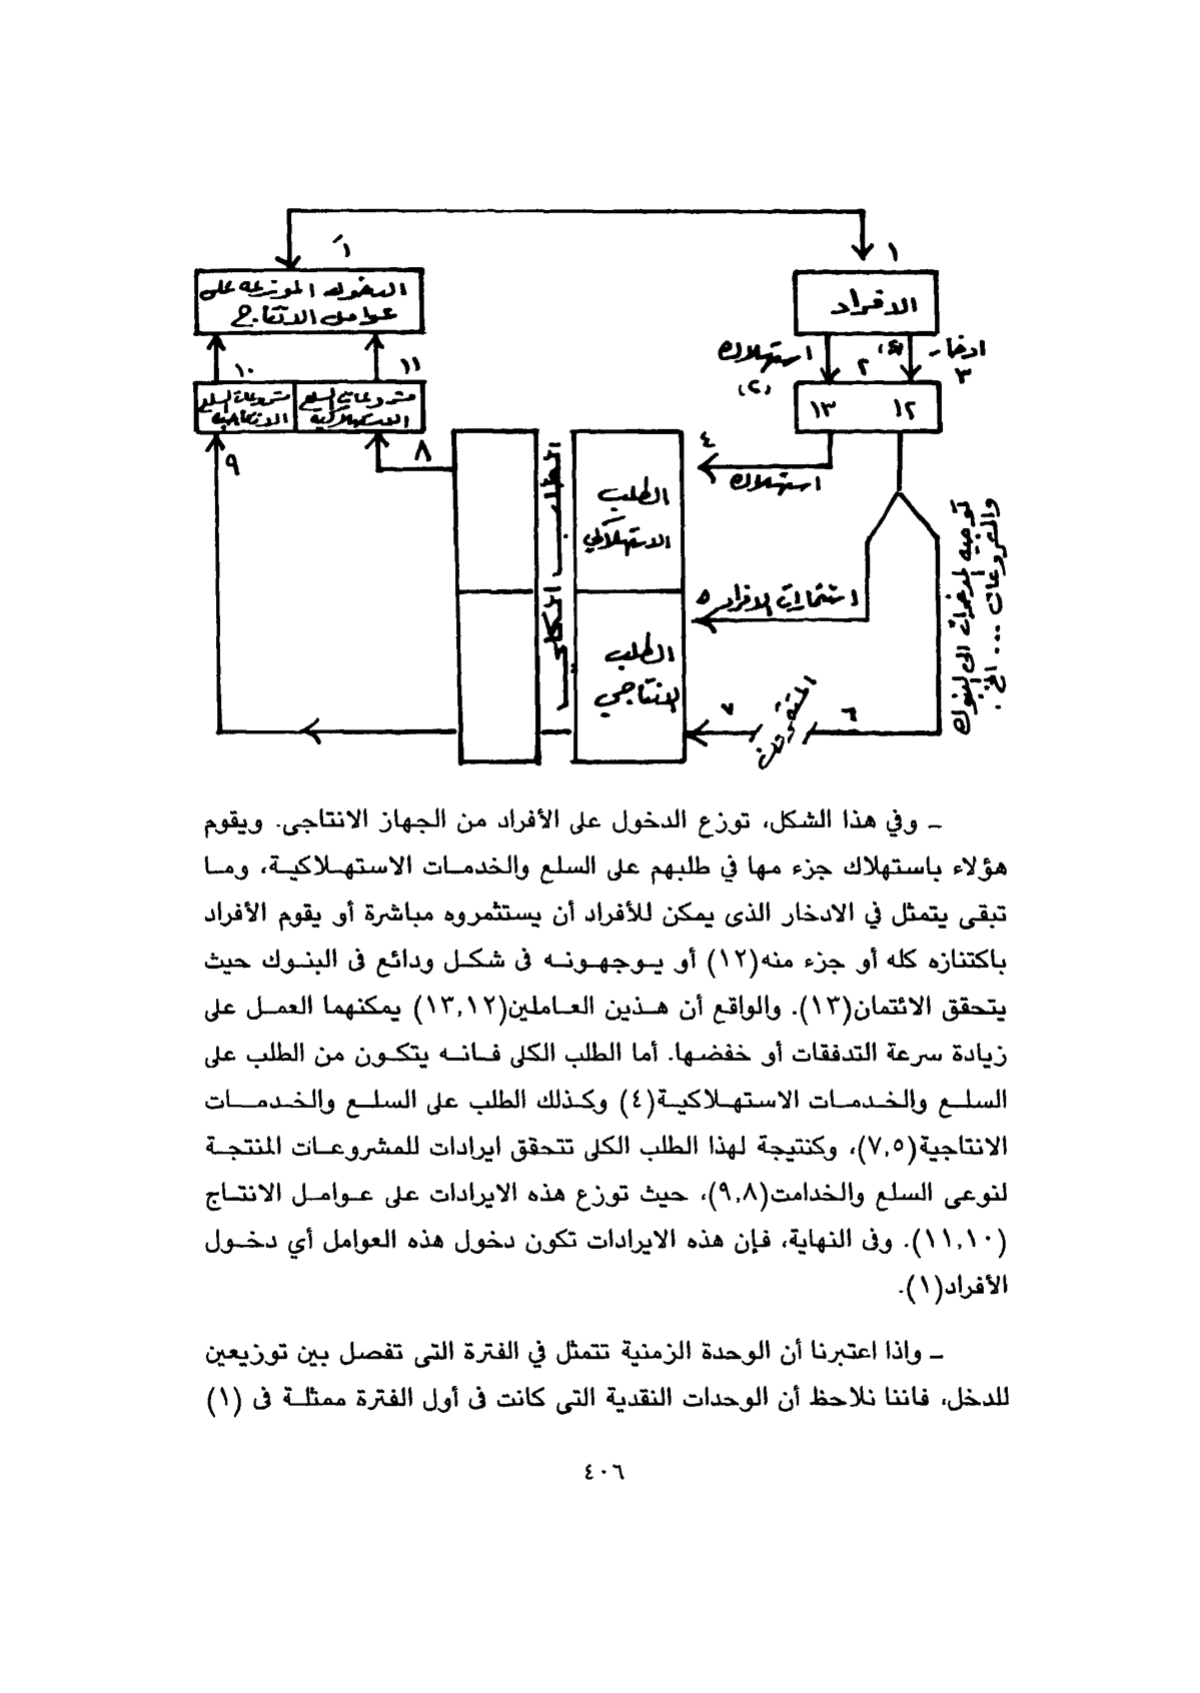 ١
١َ
الأفراد
الدخول الموزعة على
عوامل الانتاج
ادخار
٣
٢
استهلاك
١١
١٠
مشروعات السلع
الاستهلاكية
مشروعات السلع
الانتاجية
١٢
١٣
٤
استهلاك
٨
٩
الطلب
الاستهلاكي
الطلب الكلي
توجيه المدخرات الى البنوك
والمشروعات ... الخ.
استثمارات الافراد ٥
الطلب
الانتاجي
٦
٧
ـ وفي هذا الشكل، توزع الدخول على الأفراد من الجهاز الانتاجى. ويقوم
هؤلاء باستهلاك جزء مها في طلبهم على السلع والخدمات الاستهلاكية، وما
تبقى يتمثل في الادخار الذى يمكن للأفراد أن يستثمروه مباشرة أو يقوم الأفراد
باكتنازه كله أو جزء منه(١٢) أو يوجهونه فى شكل ودائع فى البنوك حيث
يتحقق الائتمان(١٣). والواقع أن هذين العاملين(١٣,١٢) يمكنهما العمل على
زيادة سرعة التدفقات أو خفضها. أما الطلب الكلى فانه يتكون من الطلب على
السلع والخدمات الاستهلاكية(٤) وكذلك الطلب على السلع والخدمات
الانتاجية(٧,٥)، وكنتيجة لهذا الطلب الكلى تتحقق ايرادات للمشروعات المنتجة
لنوعى السلع والخدامت(٩,٨)، حيث توزع هذه الايرادات على عوامل الانتاج
(١١,١٠). وفى النهاية، فإن هذه الايرادات تكون دخول هذه العوامل أي دخول
الأفراد(١).
ـ واذا اعتبرنا أن الوحدة الزمنية تتمثل في الفترة التى تفصل بين توزيعين
للدخل، فاننا نلاحظ أن الوحدات النقدية التى كانت فى أول الفترة ممثلة فى (١)
٤٠٦